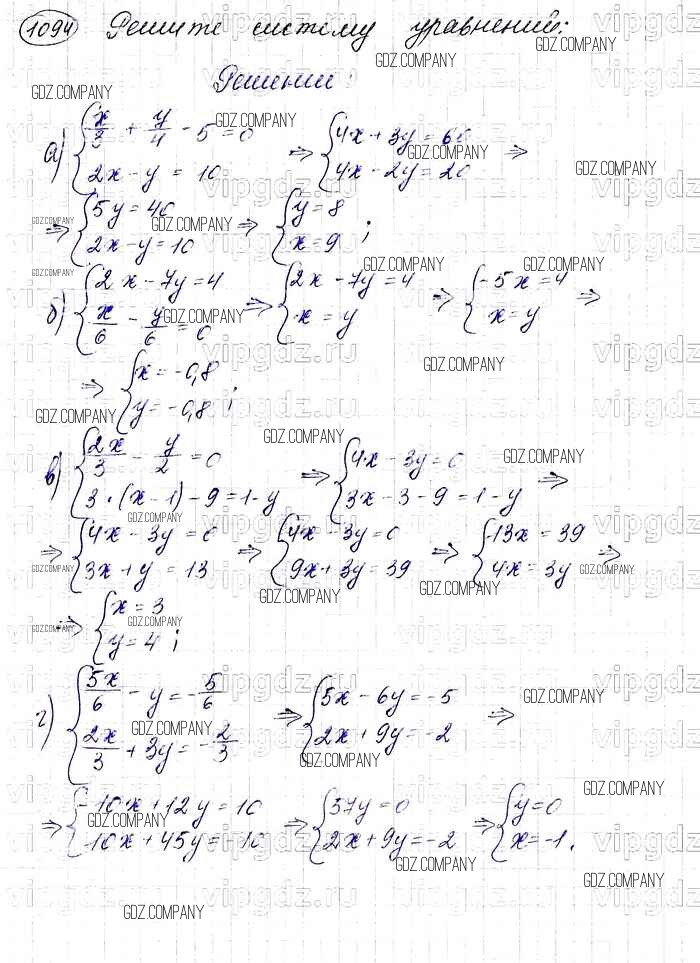 1094 Решите систему уравнений:
Решение:
а) { x/3 + y/4 - 5 = 0 ; 2x - y = 10 => { 4x + 3y = 60 ; 4x - 2y = 20 =>
=> { 5y = 40 ; 2x - y = 10 => { y = 8 ; x = 9 ;
б) { 2x - 7y = 4 ; x/6 - y/6 = 0 => { 2x - 7y = 4 ; x = y => { -5x = 4 ; x = y =>
=> { x = -0,8 ; y = -0,8 ;
в) { 2x/3 - y/2 = 0 ; 3·(x - 1) - 9 = 1 - y => { 4x - 3y = 0 ; 3x - 3 - 9 = 1 - y =>
=> { 4x - 3y = 0 ; 3x + y = 13 => { 4x - 3y = 0 ; 9x + 3y = 39 => { 13x = 39 ; 4x = 3y =>
=> { x = 3 ; y = 4 ;
г) { 5x/6 - y = -5/6 ; 2x/3 + 3y = -2/3 => { 5x - 6y = -5 ; 2x + 9y = -2 =>
=> { -10x + 12y = 10 ; 10x + 45y = -10 => { 37y = 0 ; 2x + 9y = -2 => { y = 0 ; x = -1.
GDZ.COMPANY
vipgdz.ru